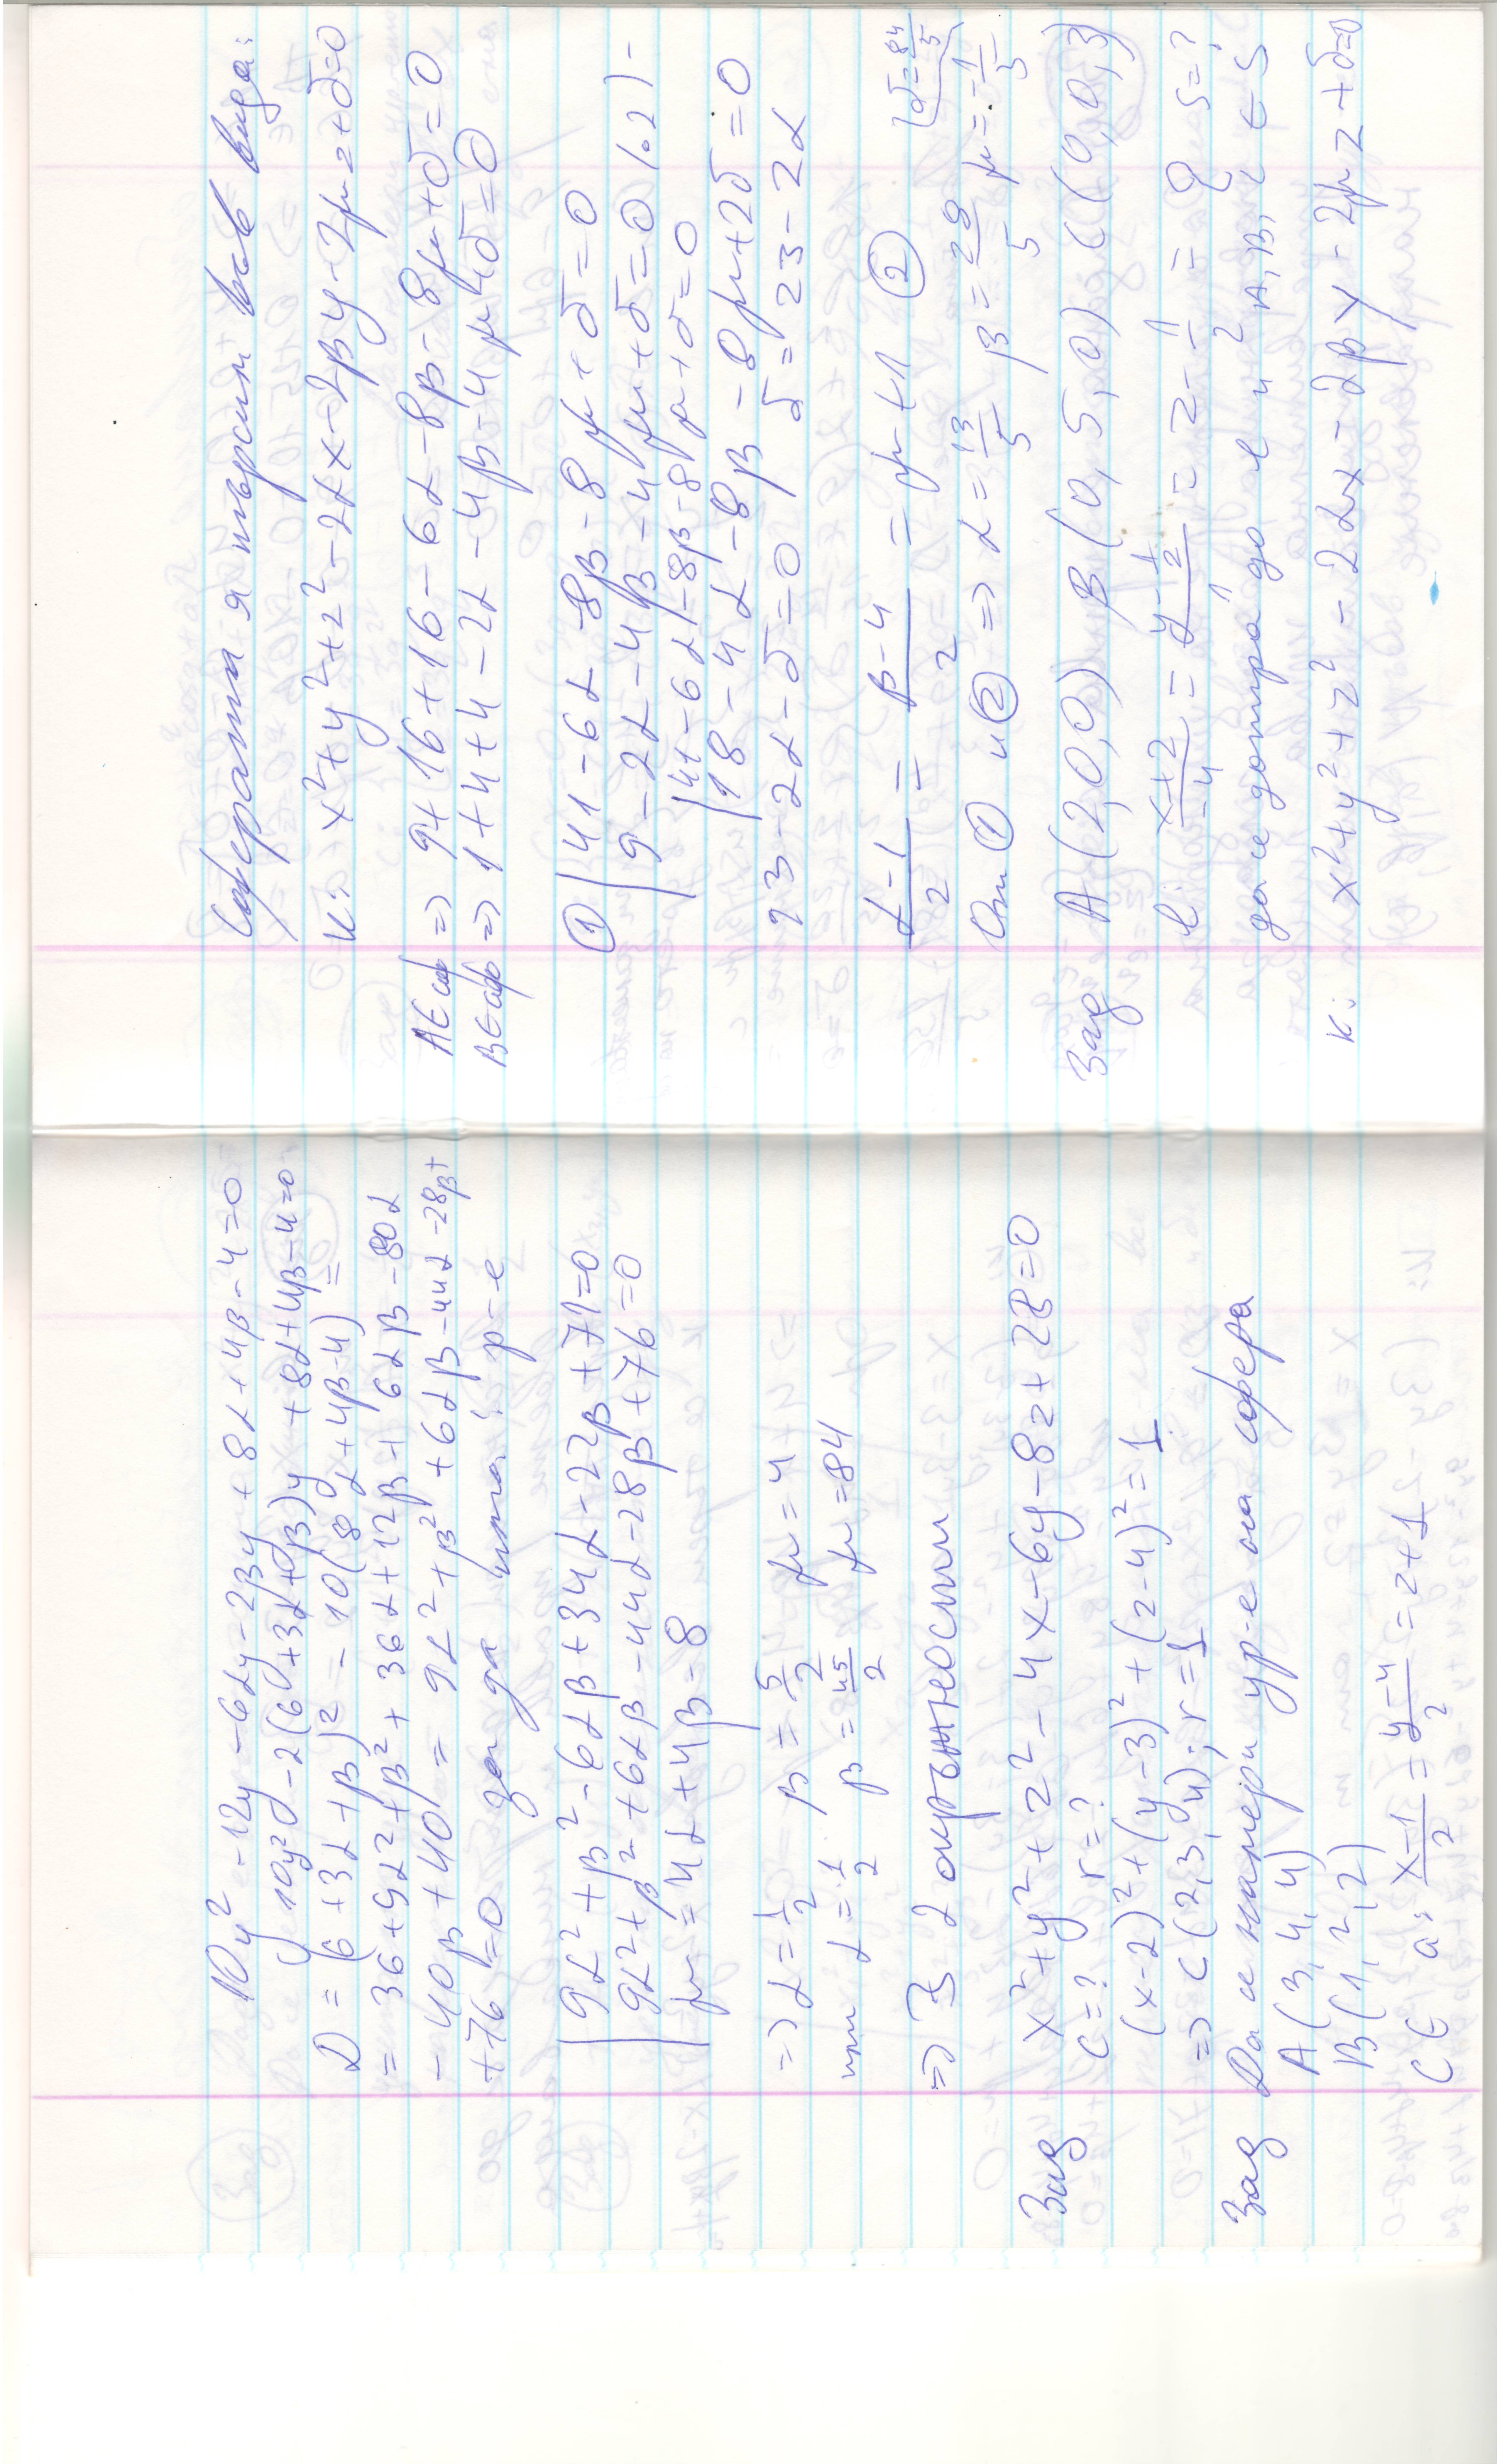 10y² - 12y - 6αy - 2βy + 8α + 4β - 4 = 0
10y² - 2(6 + 3α + β)y + 8α + 4β - 4 = 0
D = (6 + 3α + β)² - 10(8α + 4β - 4) =
= 36 + 9α² + β² + 36α + 12β + 6αβ - 80α
- 40β + 40 = 9α² + β² + 6αβ - 44α - 28β +
+ 76 = 0 за да има! р-е
9α² + β² - 6αβ + 34α - 22β + 71 = 0
9α² + β² + 6αβ - 44α - 28β + 76 = 0
μ = 4α + 4β - 8
=> α = 1/2 β = 5/2 μ = 4
или α = 1/2 β = 45/2 μ = 84
=> ∃ 2 окръжности
Зад x² + y² + z² - 4x - 6y - 8z + 28 = 0
C = ? r = ?
(x-2)² + (y-3)² + (z-4)² = 1
=> C(2, 3, 4); r = 1
Зад Да се намери ур-е на сфера
A(3, 4, 4)
B(1, 2, 2)
C ∈ a: x-1/2 = y-4/2 = z+1
Сферата я търсим във вида:
K: x² + y² + z² - 2αx - 2βy - 2μz + δ = 0
A ∈ сф => 9 + 16 + 16 - 6α - 8β - 8μ + δ = 0
B ∈ сф => 1 + 4 + 4 - 2α - 4β - 4μ + δ = 0
① 41 - 6α - 8β - 8μ + δ = 0
9 - 2α - 4β - 4μ + δ = 0 /.2) -
41 - 6α - 8β - 8μ + δ = 0
18 - 4α - 8β - 8μ + 2δ = 0
23 - 2α - δ = 0 δ = 23 - 2α
α-1/2 = β-4/2 = μ+1 ②
От ① и ② => α = 13/5 β = 28/5 μ = -1/5 δ = 84/5
Зад A(2,0,0) B(0,5,0) C(0,0,3)
l: x+2/-4 = y-1/2/1 = z-1/2 = 0 S = ?
да се допира до l и A, B, C ∈ S
K: x² + y² + z² - 2αx - 2βy - 2μz + δ = 0